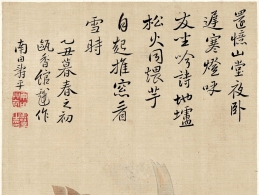 置憶山堂夜卧
遲寒燈呼
友坐吟詩地壚
松火同煨芋
自起推窓看
雪時
乙丑暮春之初
甌香館遣作
南田壽平